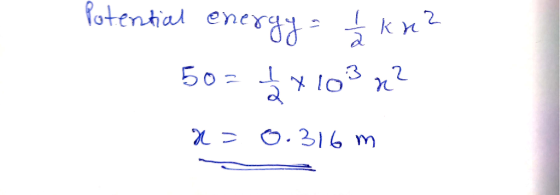 Potential energy = 1/2 kx²
50 = 1/2 × 10³ x²
x = 0.316 m